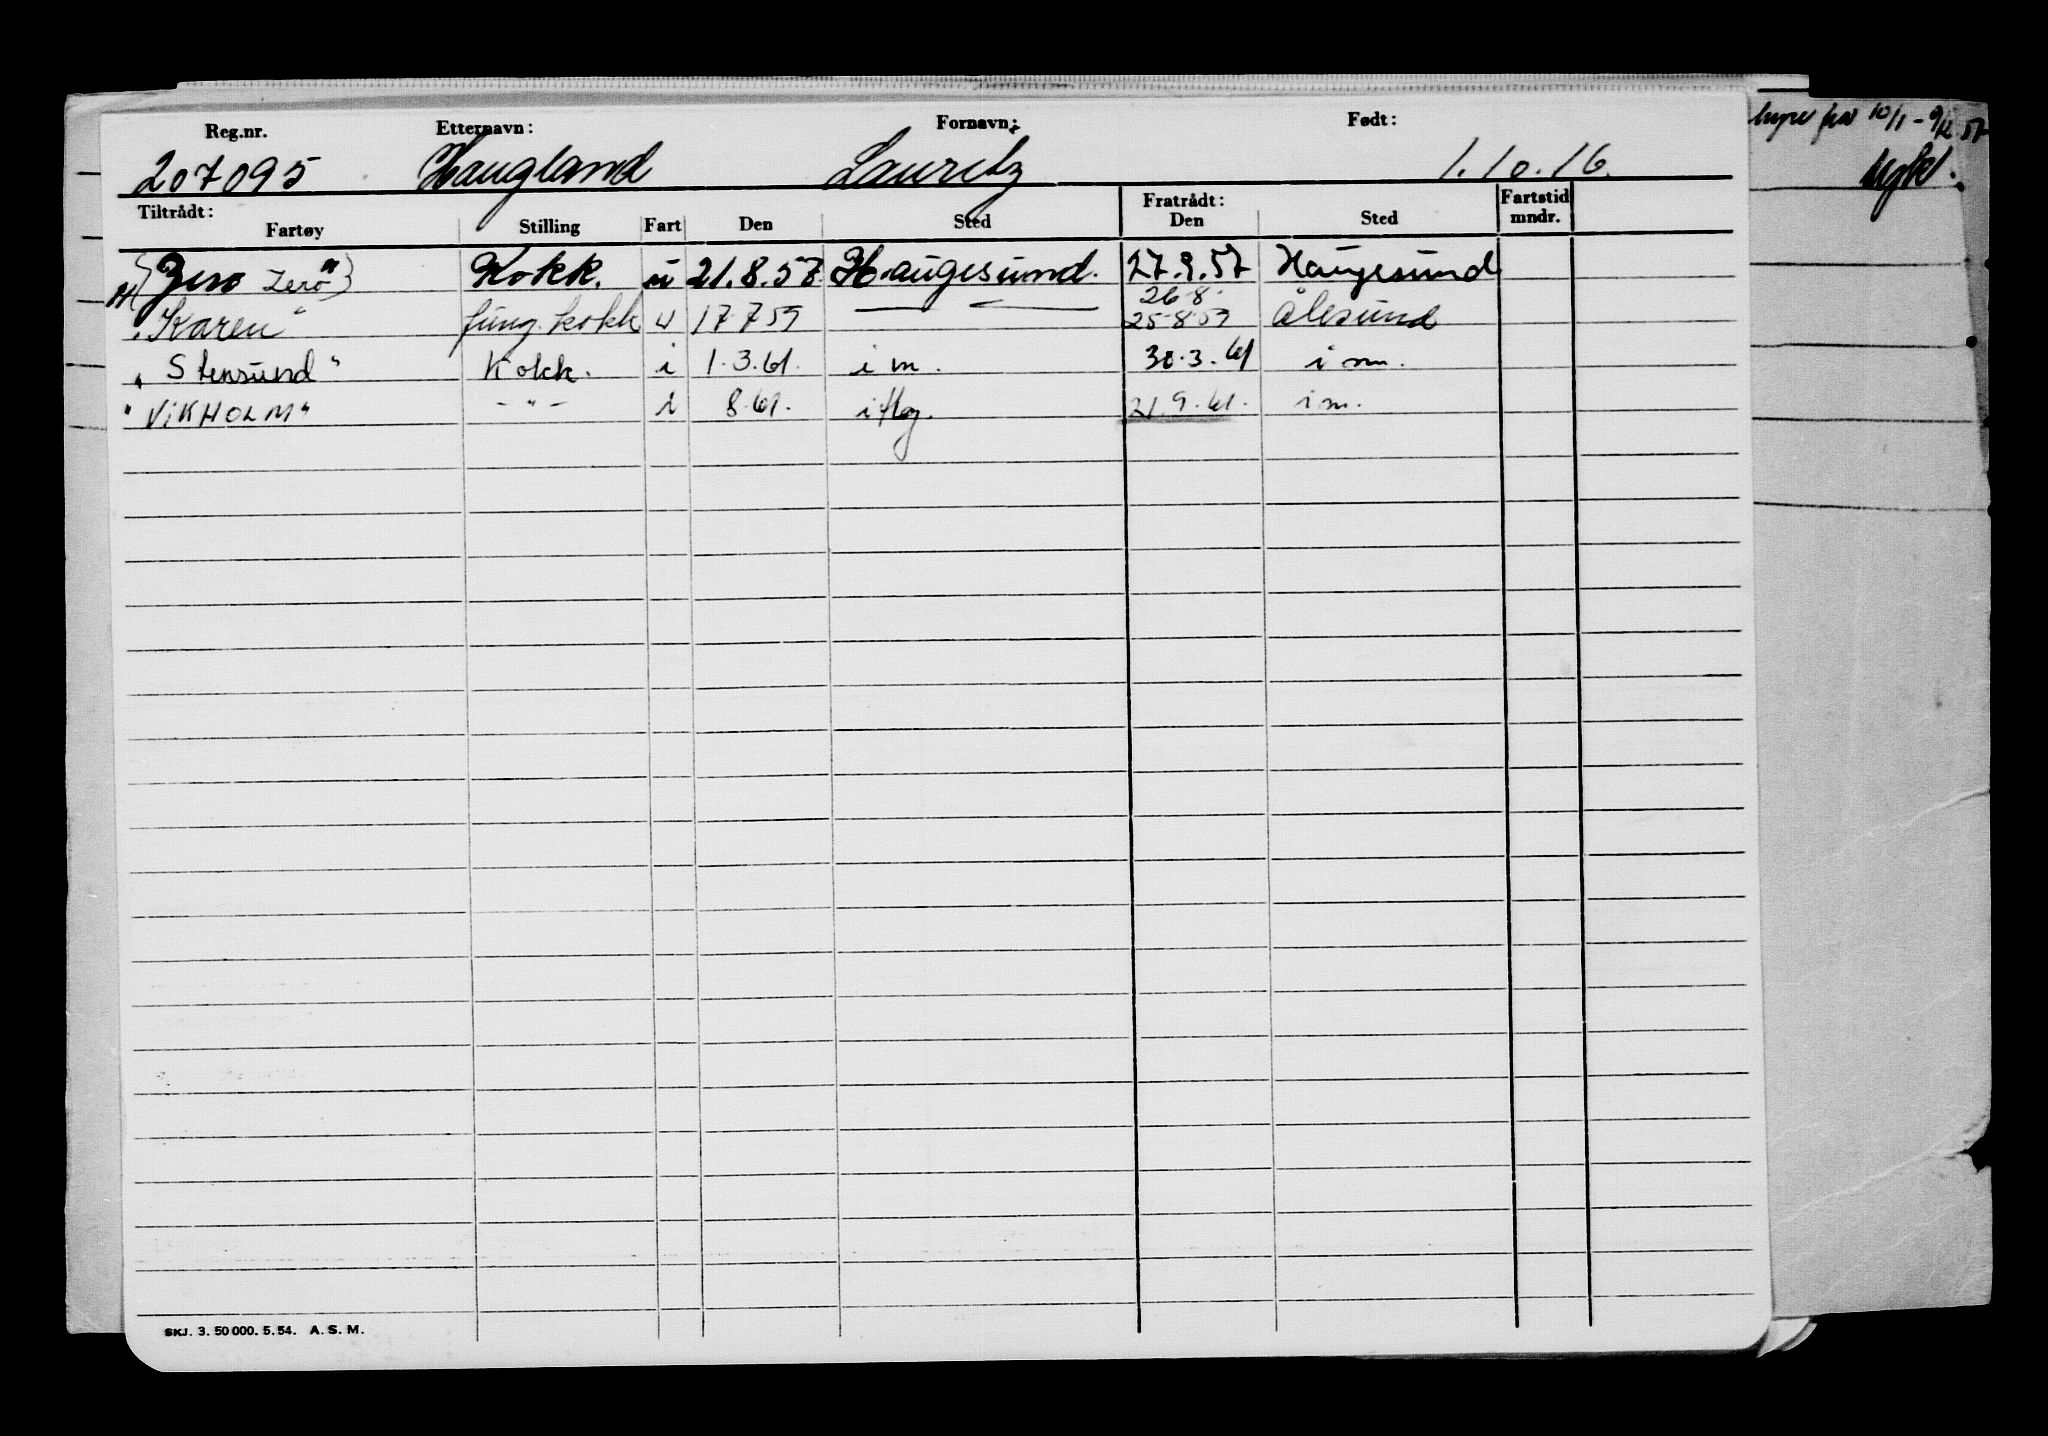 Reg.nr. Etternavn: Fornavn: Født:
207095 Haugland Lauritz 1.10.16.
Tiltrådt: Fratrådt: Fartstid
Fartøy Stilling Fart Den Sted Den Sted mndr.
{ Zero Zerø" } Kokk. u 21.8.57 Haugesund. 27.9.57 Haugesund
26-8.
"Karen" fung. kokk u 17 7 59 — " — 25-8-59 Ålesund
"Stensund" Kokk. i 1.3.61. i m. 30.3.61 i m.
"VIKHOLM" - " - i 8.61. i flg. 21.9.61. i m.
SKJ. 3. 50 000. 5.54. A. S. M.
hyre fra 10/11 - 9/12 57